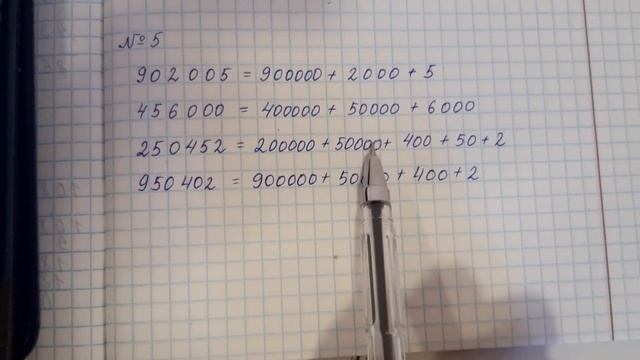 № 5
902 005 = 900000 + 2000 + 5
456 000 = 400000 + 50000 + 6000
250 452 = 200000 + 50000 + 400 + 50 + 2
950 402 = 900000 + + 400 + 2